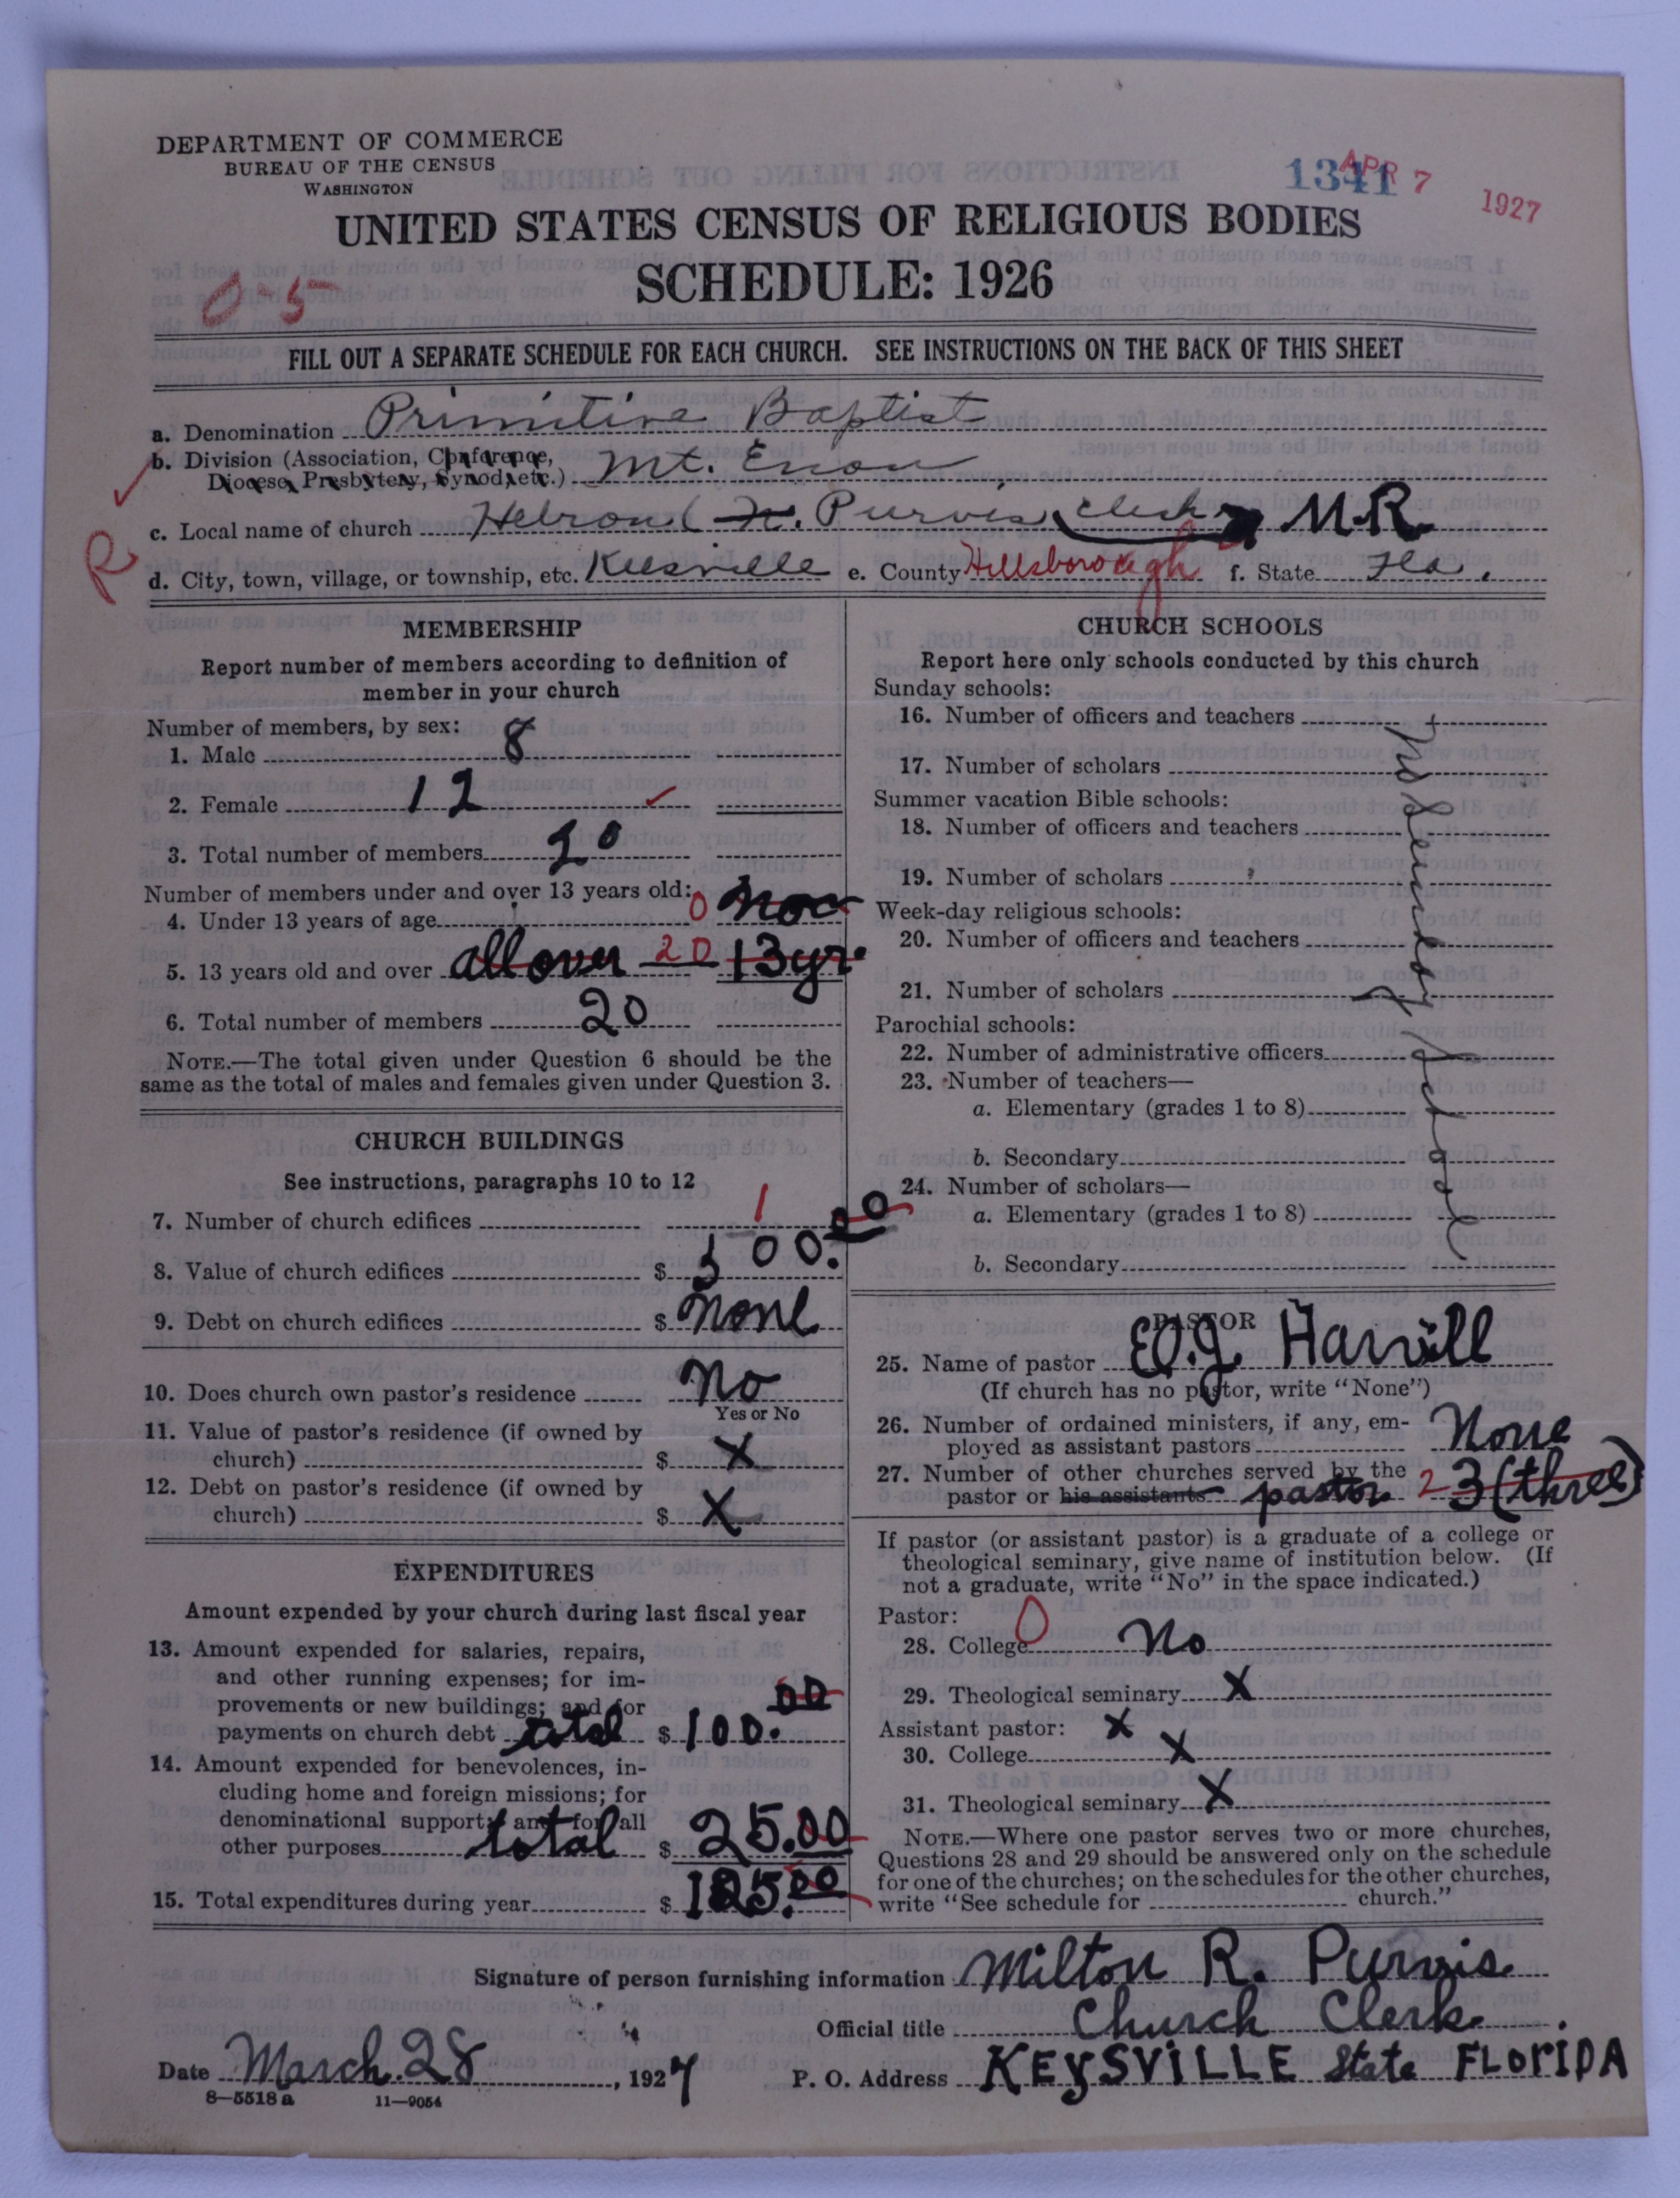 DEPARTMENT OF COMMERCE
BUREAU OF THE CENSUS
WASHINGTON
1341
APR 7 1927
UNITED STATES CENSUS OF RELIGIOUS BODIES
SCHEDULE: 1926
0-5
FILL OUT A SEPARATE SCHEDULE FOR EACH CHURCH. SEE INSTRUCTIONS ON THE BACK OF THIS SHEET
a. Denomination Primitive Baptist
b. Division (Association, Conference, Diocese, Presbytery, Synod, etc.) Mt. Enon
c. Local name of church Hebron ( Purvis, clerk M.R.
R
d. City, town, village, or township, etc. Keesville e. County Hillsborough f. State Fla.
MEMBERSHIP
Report number of members according to definition of
member in your church
Number of members, by sex:
1. Male 8
2. Female 12
3. Total number of members 20
Number of members under and over 13 years old:
4. Under 13 years of age 0
5. 13 years old and over all over 20 13 yr.
6. Total number of members 20
NOTE.—The total given under Question 6 should be the
same as the total of males and females given under Question 3.
CHURCH BUILDINGS
See instructions, paragraphs 10 to 12
7. Number of church edifices 1
8. Value of church edifices $ 500.00
9. Debt on church edifices $ none
10. Does church own pastor's residence No
Yes or No
11. Value of pastor's residence (if owned by
church) $ X
12. Debt on pastor's residence (if owned by
church) $ X
EXPENDITURES
Amount expended by your church during last fiscal year
13. Amount expended for salaries, repairs,
and other running expenses; for im-
provements or new buildings; and for
payments on church debt total $ 100.00
14. Amount expended for benevolences, in-
cluding home and foreign missions; for
denominational support; and for all
other purposes total $ 25.00
15. Total expenditures during year $ 125.00
CHURCH SCHOOLS
Report here only schools conducted by this church
Sunday schools:
16. Number of officers and teachers
17. Number of scholars
Summer vacation Bible schools:
18. Number of officers and teachers
19. Number of scholars
Week-day religious schools:
20. Number of officers and teachers
21. Number of scholars
Parochial schools:
22. Number of administrative officers
23. Number of teachers—
a. Elementary (grades 1 to 8)
b. Secondary
24. Number of scholars—
a. Elementary (grades 1 to 8)
b. Secondary
no Sunday School
PASTOR
25. Name of pastor Harvill
(If church has no pastor, write "None")
26. Number of ordained ministers, if any, em-
ployed as assistant pastors None
27. Number of other churches served by the
pastor or his assistants pastor 2 3 (three)
If pastor (or assistant pastor) is a graduate of a college or
theological seminary, give name of institution below. (If
not a graduate, write "No" in the space indicated.)
Pastor:
28. College 0 No
29. Theological seminary X
Assistant pastor: X
30. College X
31. Theological seminary X
NOTE.—Where one pastor serves two or more churches,
Questions 28 and 29 should be answered only on the schedule
for one of the churches; on the schedules for the other churches,
write "See schedule for church."
Signature of person furnishing information Milton R. Purvis
Official title Church Clerk
Date March. 28, 1927 P. O. Address KEYSVILLE State FLORIDA
8—5518 a 11—9054